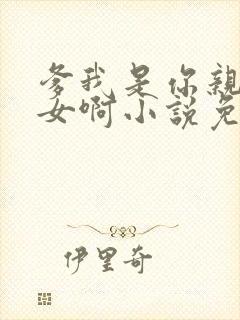 爹我是你親
女啊小說免
伊里奇